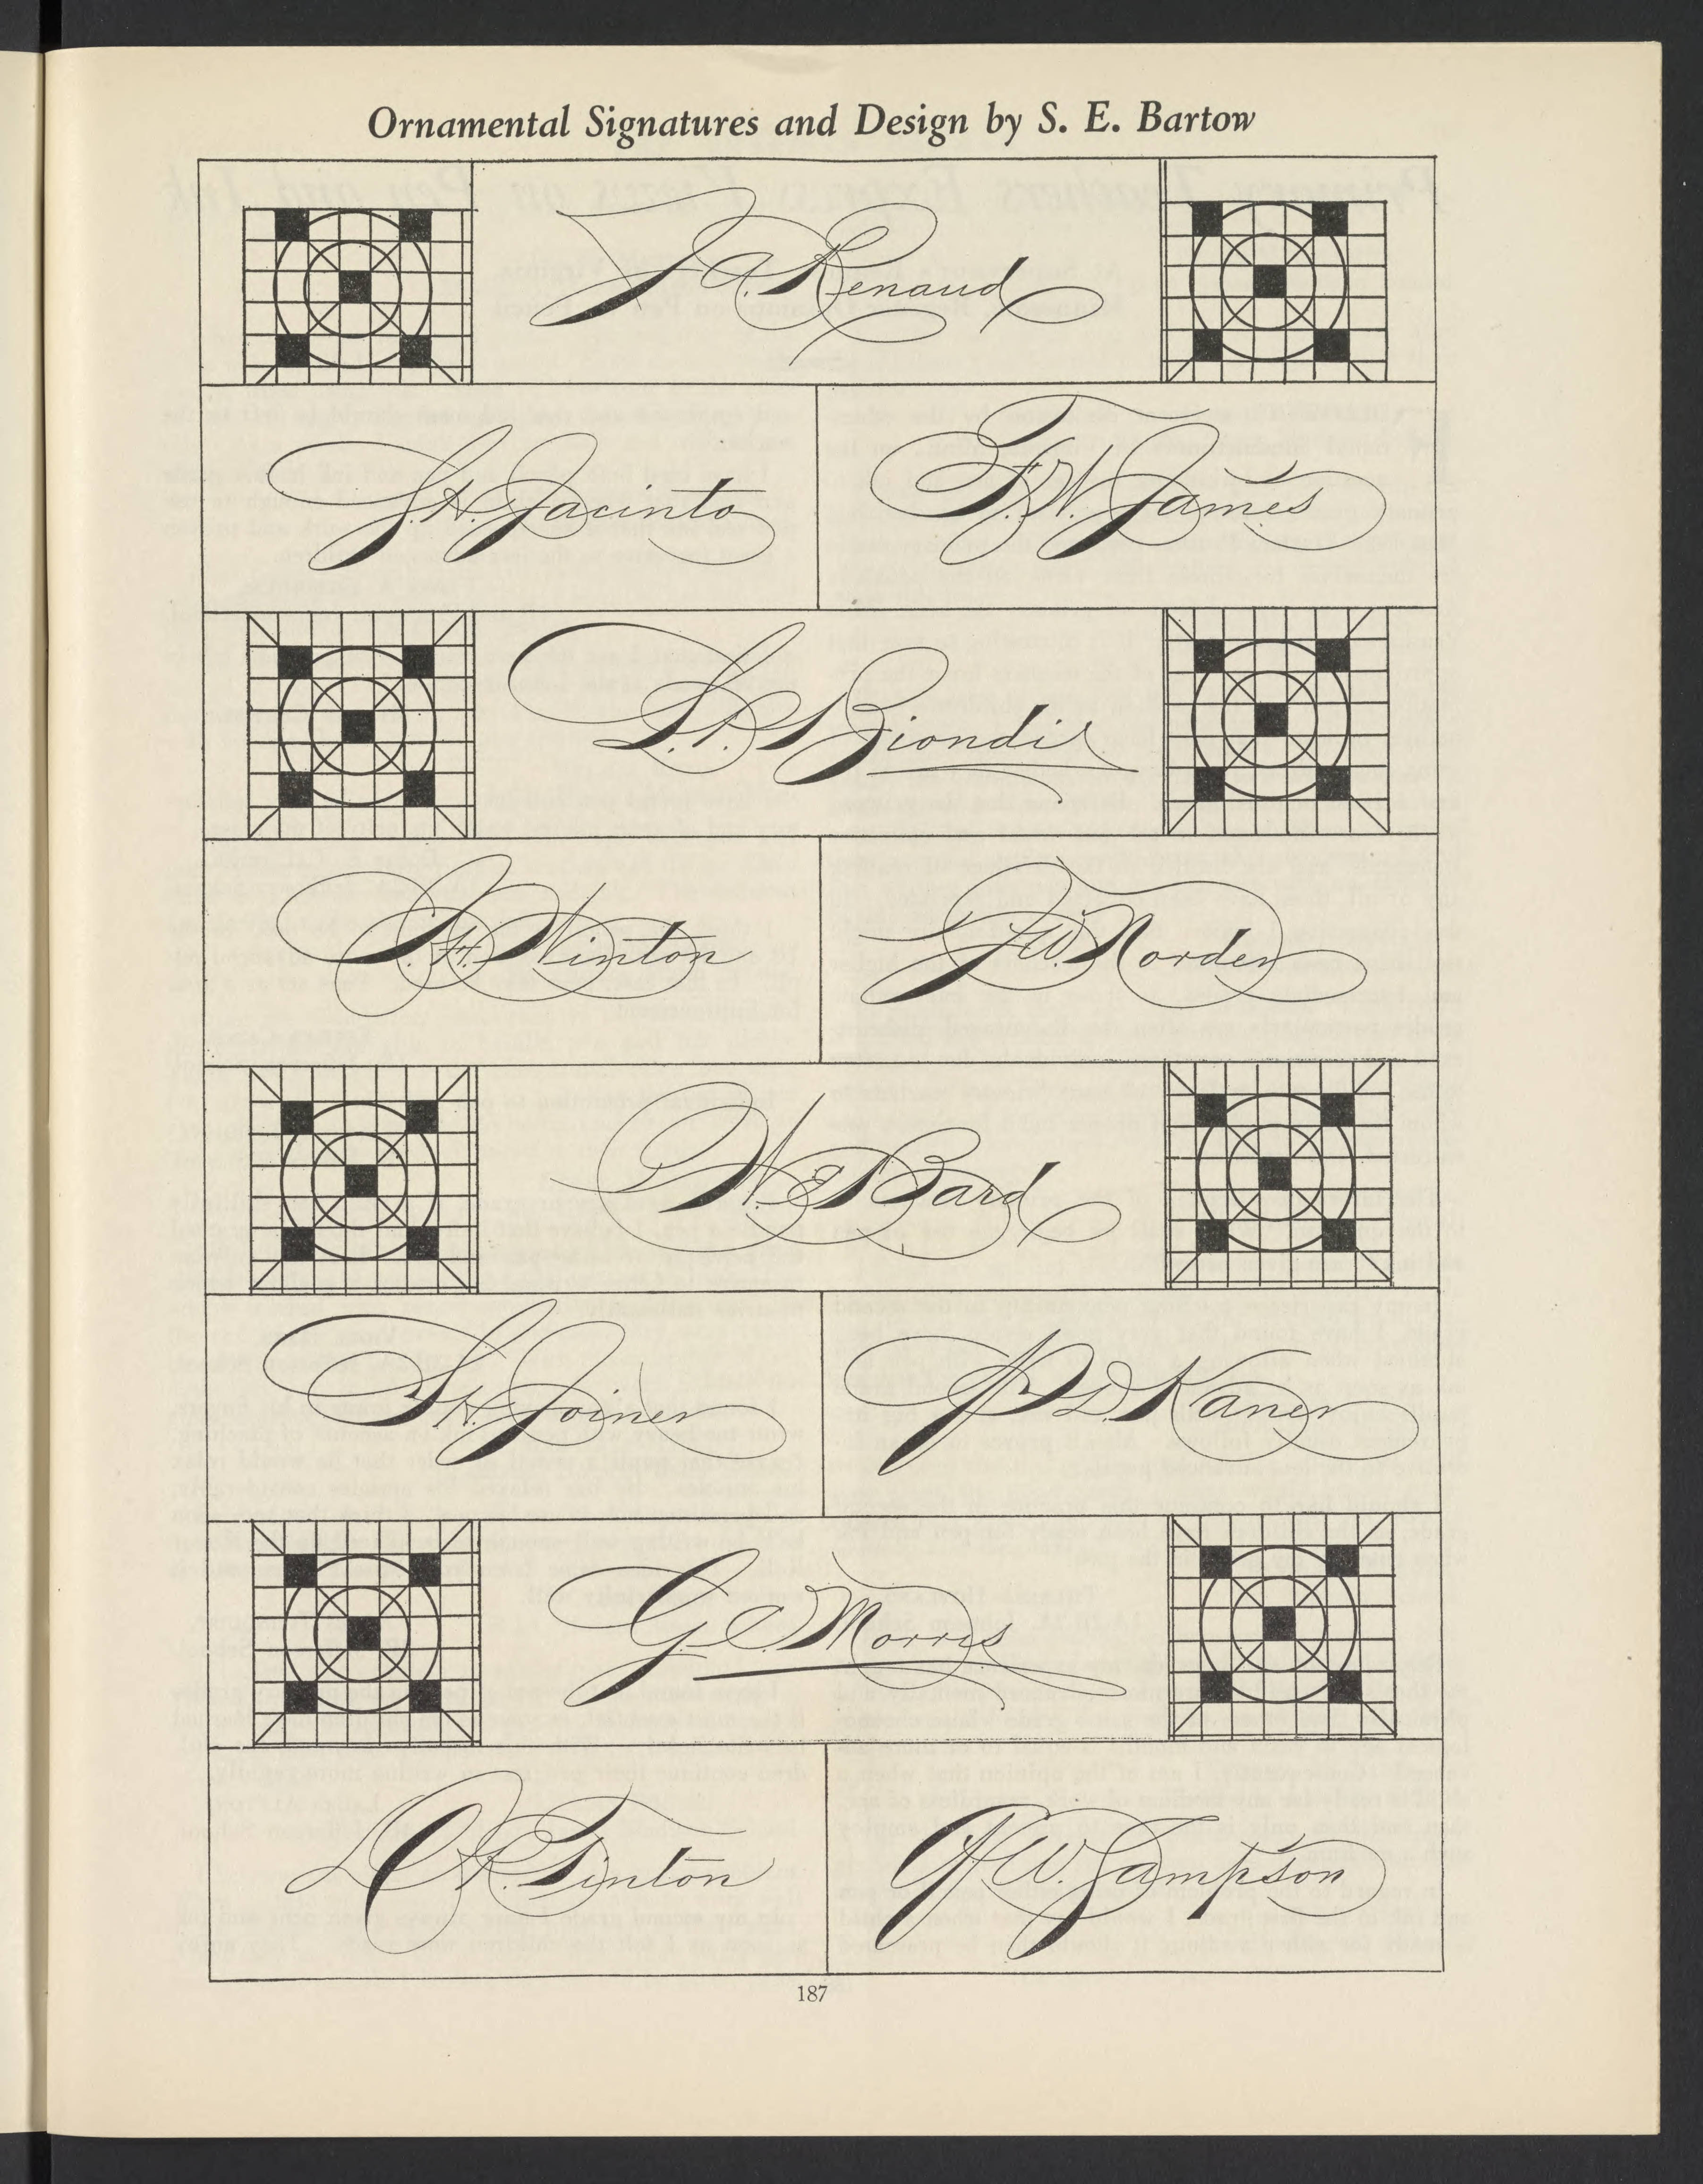 Ornamental Signatures and Design by S. E. Bartow
J. A. Renaud
S. H. Jacinto
F. W. James
S. P. Biondi
S. H. Winton
J. W. Norden
W. E. Bard
S. H. Joiner
P. D. Kaner
G. C. Morris
O. K. Tinton
G. W. Sampson
187